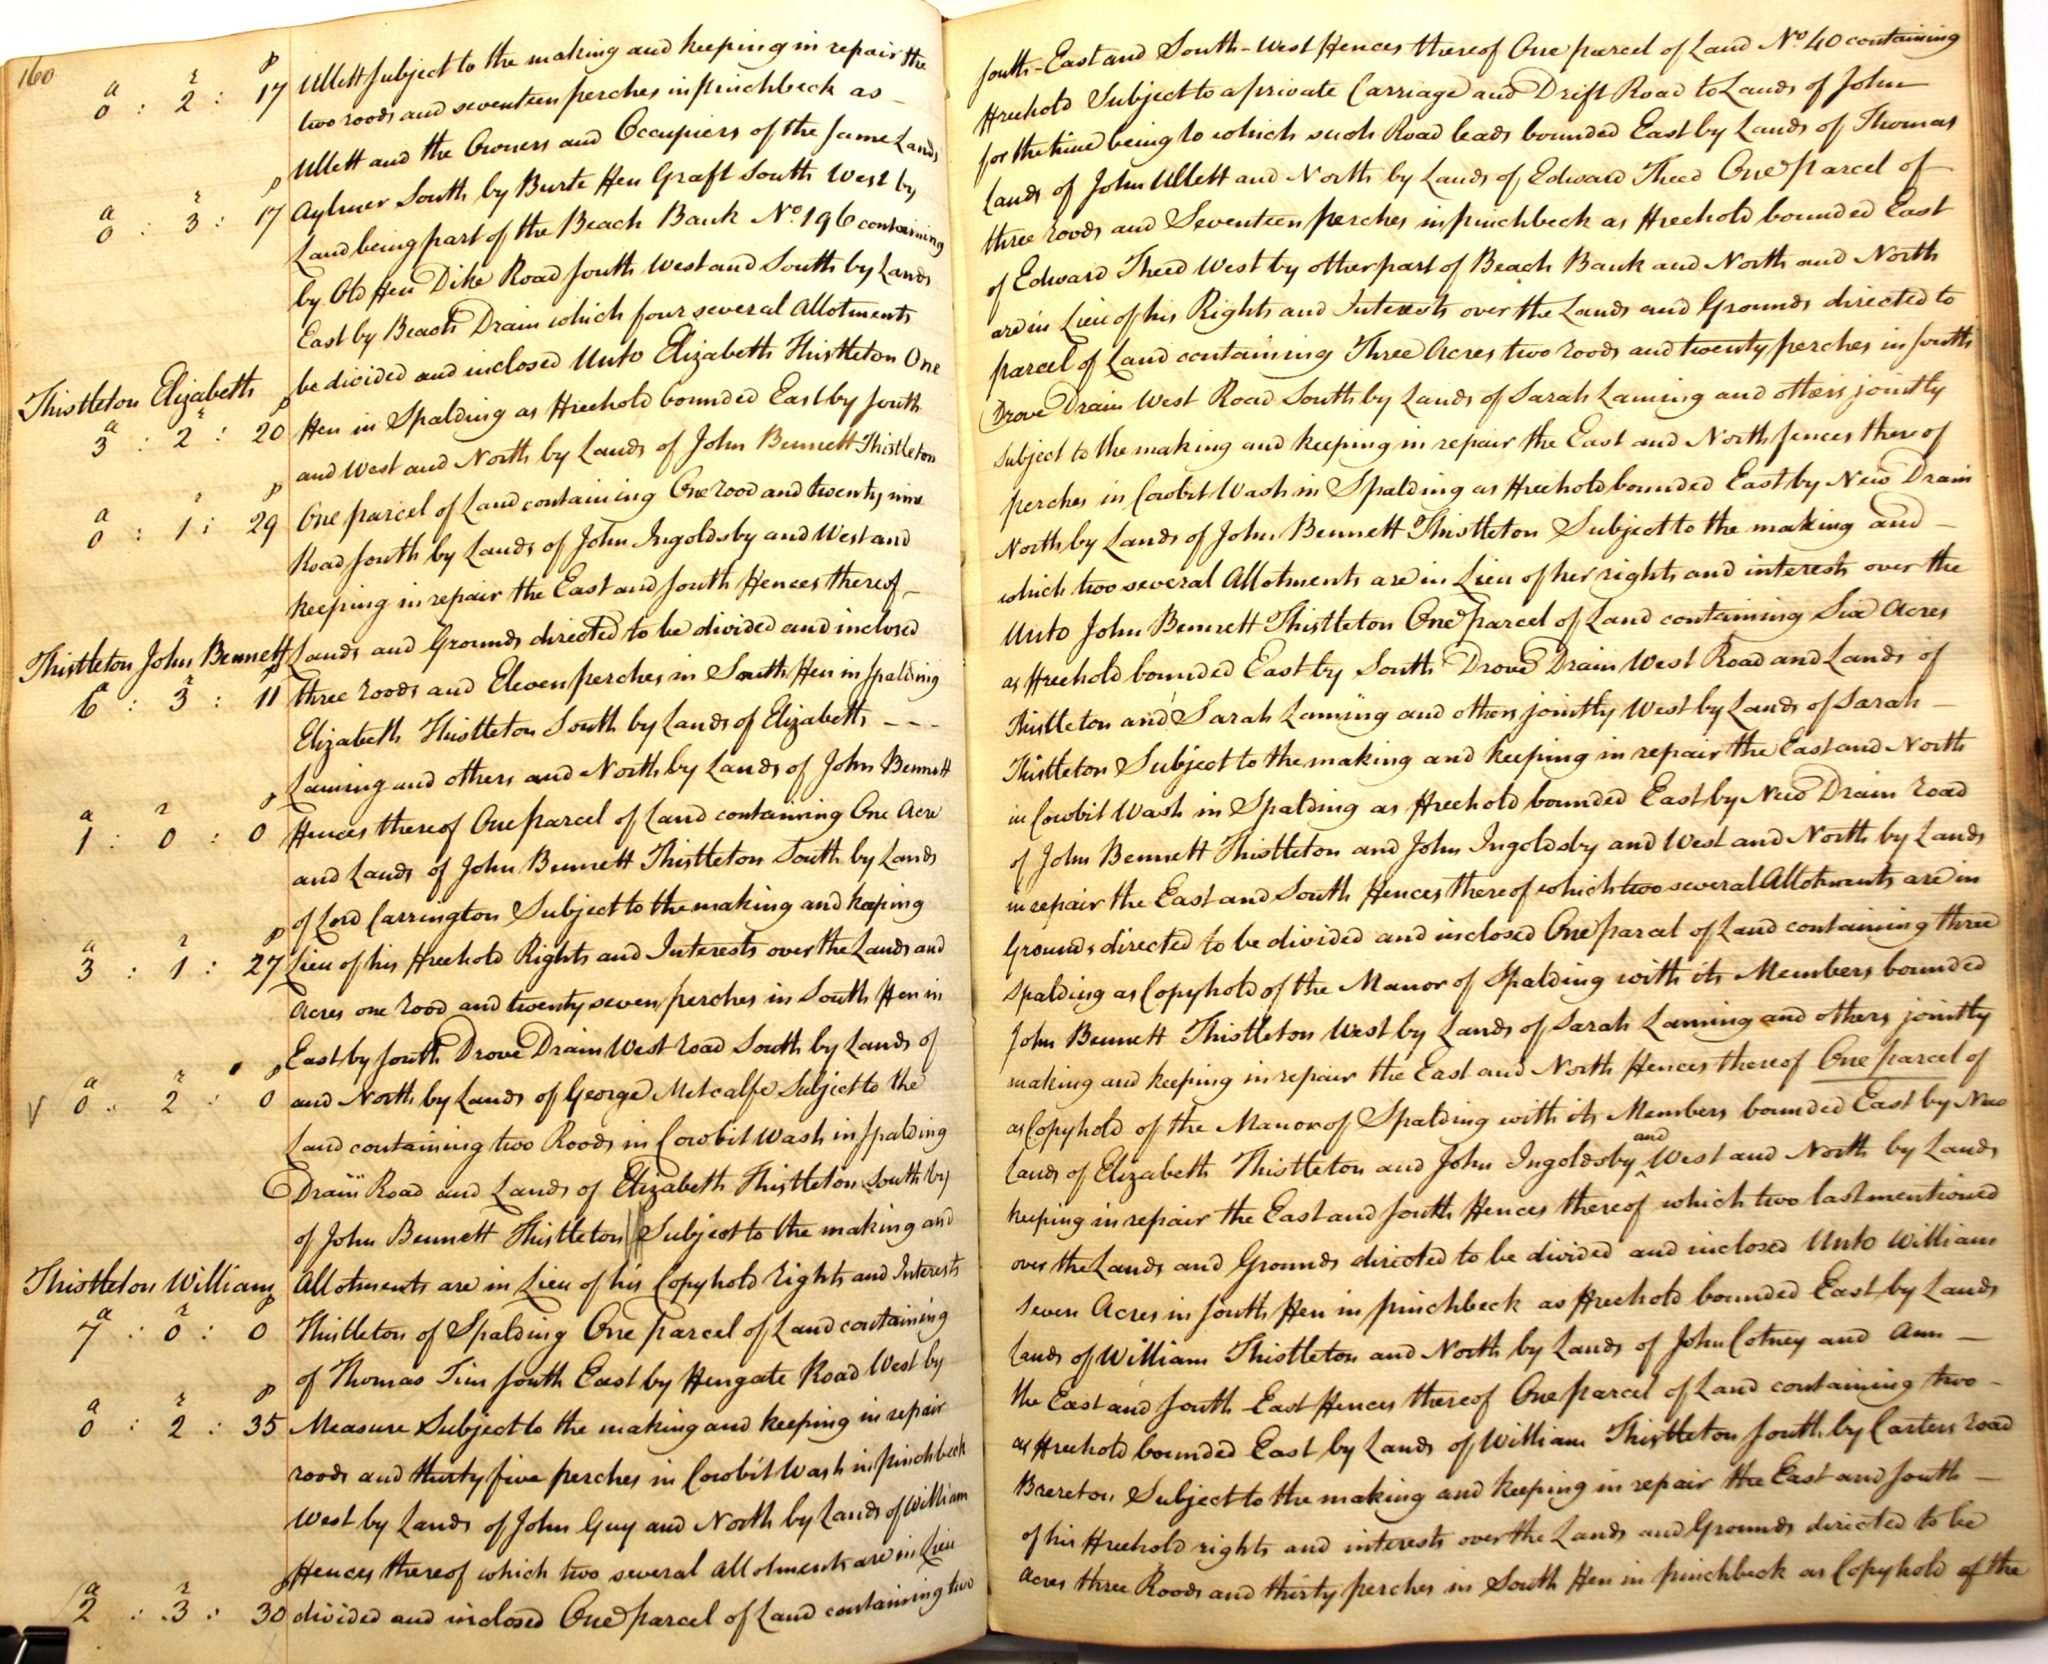 160
a r p
0 : 2 : 17 Ullett subject to the making and keeping in repair the South-East and South-West Fences thereof One parcel of Land No 40 containing
two roods and seventeen perches in pinchbeck as Freehold Subject to a private Carriage and Drift Road to Lands of John
Ullett and the Owners and Occupiers of the same Lands for the time being to which such Road leads bounded East by Lands of Thomas
a r p
0 : 3 : 17 Aylmer South by Burte Fen Graft South West by Lands of John Ullett and North by Lands of Edward Theed One parcel of
Land being part of the Beach Bank No 196 containing three roods and Seventeen perches in pinchbeck as Freehold bounded East
by Old Fen Dike Road South West and South by Lands of Edward Theed West by other part of Beach Bank and North and North
East by Beach Drain which four several Allotments are in Lieu of his Rights and Interests over the Lands and Grounds directed to
Thistleton Elizabeth be divided and inclosed Unto Elizabeth Thistleton One parcel of Land containing Three Acres two roods and twenty perches in South
a r p
3 : 2 : 20 Fen in Spalding as Freehold bounded East by South Drove Drain West Road South by Lands of Sarah Laming and others jointly
and West and North by Lands of John Bennett Thistleton Subject to the making and keeping in repair the East and North fences thereof
a r p
0 : 1 : 29 One parcel of Land containing One rood and twenty nine perches in Cowbit Wash in Spalding as Freehold bounded East by New Drain
Road South by Lands of John Ingoldsby and West and North by Lands of John Bennett Thistleton Subject to the making and –
keeping in repair the East and South Fences thereof – which two several Allotments are in Lieu of her rights and interests over the
Thistleton John Bennett Lands and Grounds directed to be divided and inclosed Unto John Bennett Thistleton One parcel of Land containing Six Acres
a r p
6 : 3 : 11 three roods and Eleven perches in South Fen in Spalding as Freehold bounded East by South Drove Drain West Road and Lands of
Elizabeth Thistleton South by Lands of Elizabeth - - - Thistleton and Sarah Laming and others jointly West by Lands of Sarah –
Laming and others and North by Lands of John Bennett Thistleton Subject to the making and keeping in repair the East and North
a r p
1 : 0 : 0 Fences thereof One parcel of Land containing One Acre in Cowbit Wash in Spalding as Freehold bounded East by New Drain road
and Lands of John Bennett Thistleton South by Lands of John Bennett Thistleton and John Ingoldsby and West and North by Lands
of Lord Carrington Subject to the making and keeping in repair the East and South Fences thereof which two several Allotments are in
a r p
3 : 1 : 27 Lieu of his Freehold Rights and Interests over the Lands and Grounds directed to be divided and inclosed One parcel of Land containing three
Acres one rood and twenty seven perches in South Fen in Spalding as Copyhold of the Manor of Spalding with its Members bounded
East by South Drove Drain West road South by Lands of John Bennett Thistleton West by Lands of Sarah Laming and others jointly
a r p
0 : 2 : 0 and North by Lands of George Metcalfe Subject to the making and keeping in repair the East and North Fences thereof One parcel of
Land containing two Roods in Cowbit Wash in Spalding as Copyhold of the Manor of Spalding with its Members bounded East by New
Drain Road and Lands of Elizabeth Thistleton South by Lands of Elizabeth Thistleton and John Ingoldsby and West and North by Lands
of John Bennett Thistleton Subject to the making and keeping in repair the East and South Fences thereof which two last mentioned
Thistleton William Allotments are in Lieu of his Copyhold rights and Interests over the Lands and Grounds directed to be divided and inclosed Unto William
a r p
7 : 0 : 0 Thistleton of Spalding One parcel of Land containing Seven Acres in South Fen in pinchbeck as Freehold bounded East by Lands
of Thomas Tim South East by Fengate Road West by Lands of William Thistleton and North by Lands of John Cotney and Ann –
a r p
0 : 2 : 35 Measure Subject to the making and keeping in repair the East and South East Fences thereof One parcel of Land containing two –
roods and thirty five perches in Cowbit Wash in pinchbeck as Freehold bounded East by Lands of William Thistleton South by Carters road
West by Lands of John Guy and North by Lands of William Brereton Subject to the making and keeping in repair the East and South –
Fences thereof which two several Allotments are in Lieu of his Freehold rights and interests over the Lands and Grounds directed to be
a r p
2 : 3 : 30 divided and inclosed One parcel of Land containing two Acres three Roods and thirty perches in South Fen in pinchbeck as Copyhold of the